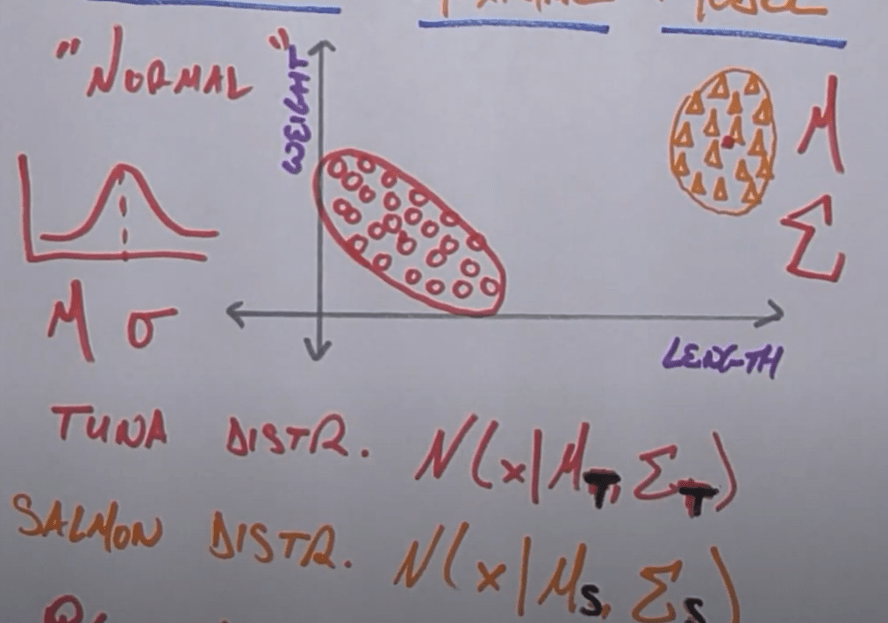 "NORMAL"
WEIGHT
μ
Σ
μ σ
LENGTH
TUNA DISTR. N(x|μT, ΣT)
SALMON DISTR. N(x|μS, ΣS)